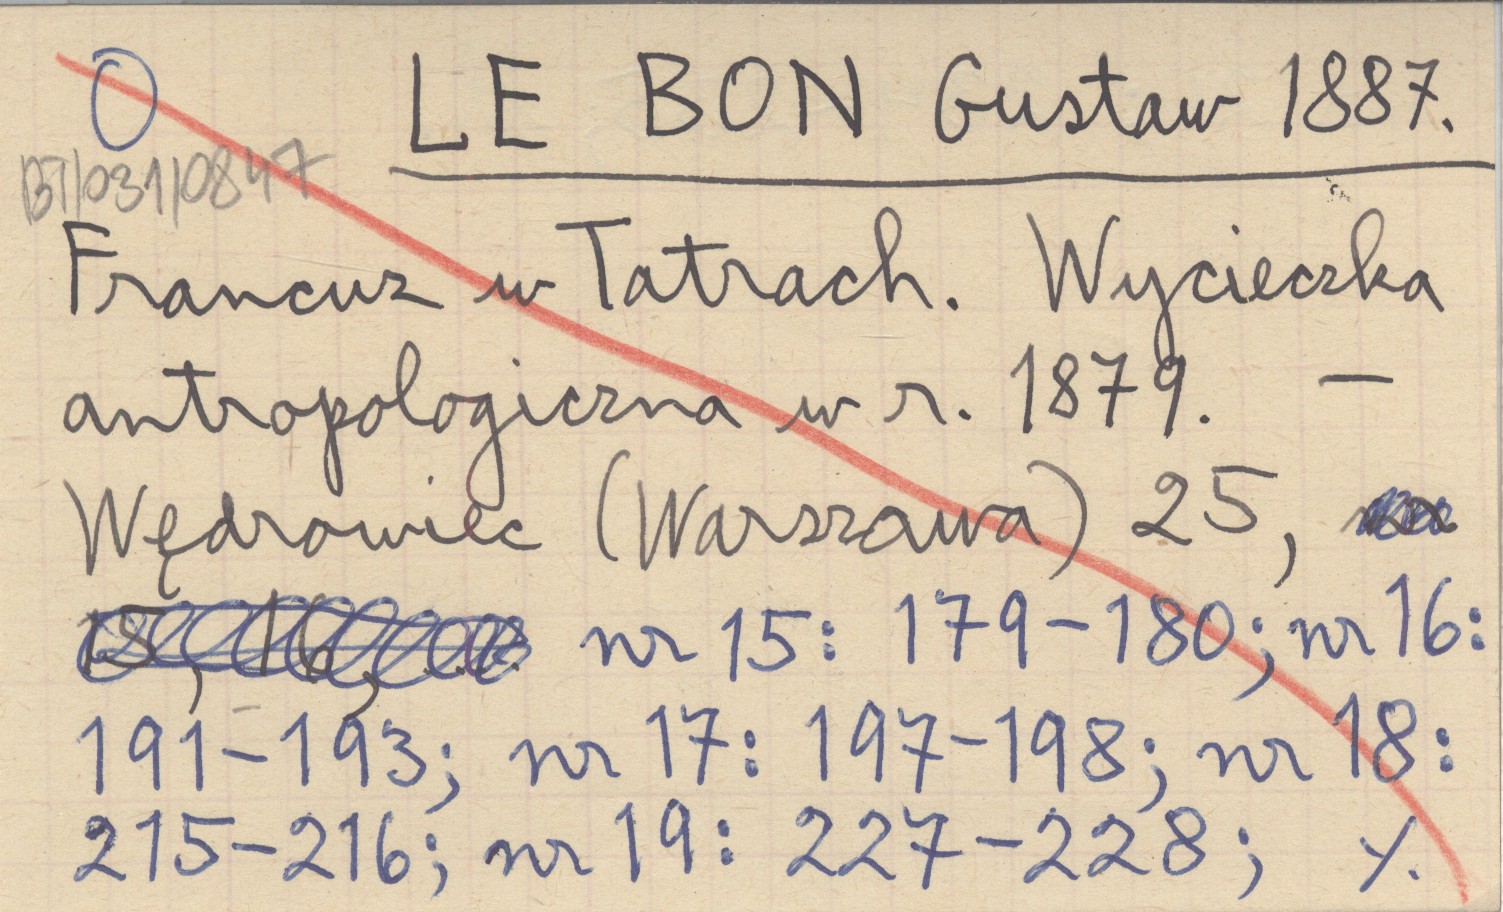 O LE BON Gustaw 1887.
BT/031/0847
Francuz w Tatrach. Wycieczka
antropologiczna w r. 1879. —
Wędrowiec (Warszawa) 25,
15, 16, nr 15: 179-180; nr 16:
191-193; nr 17: 197-198; nr 18:
215-216; nr 19: 227-228; ./.